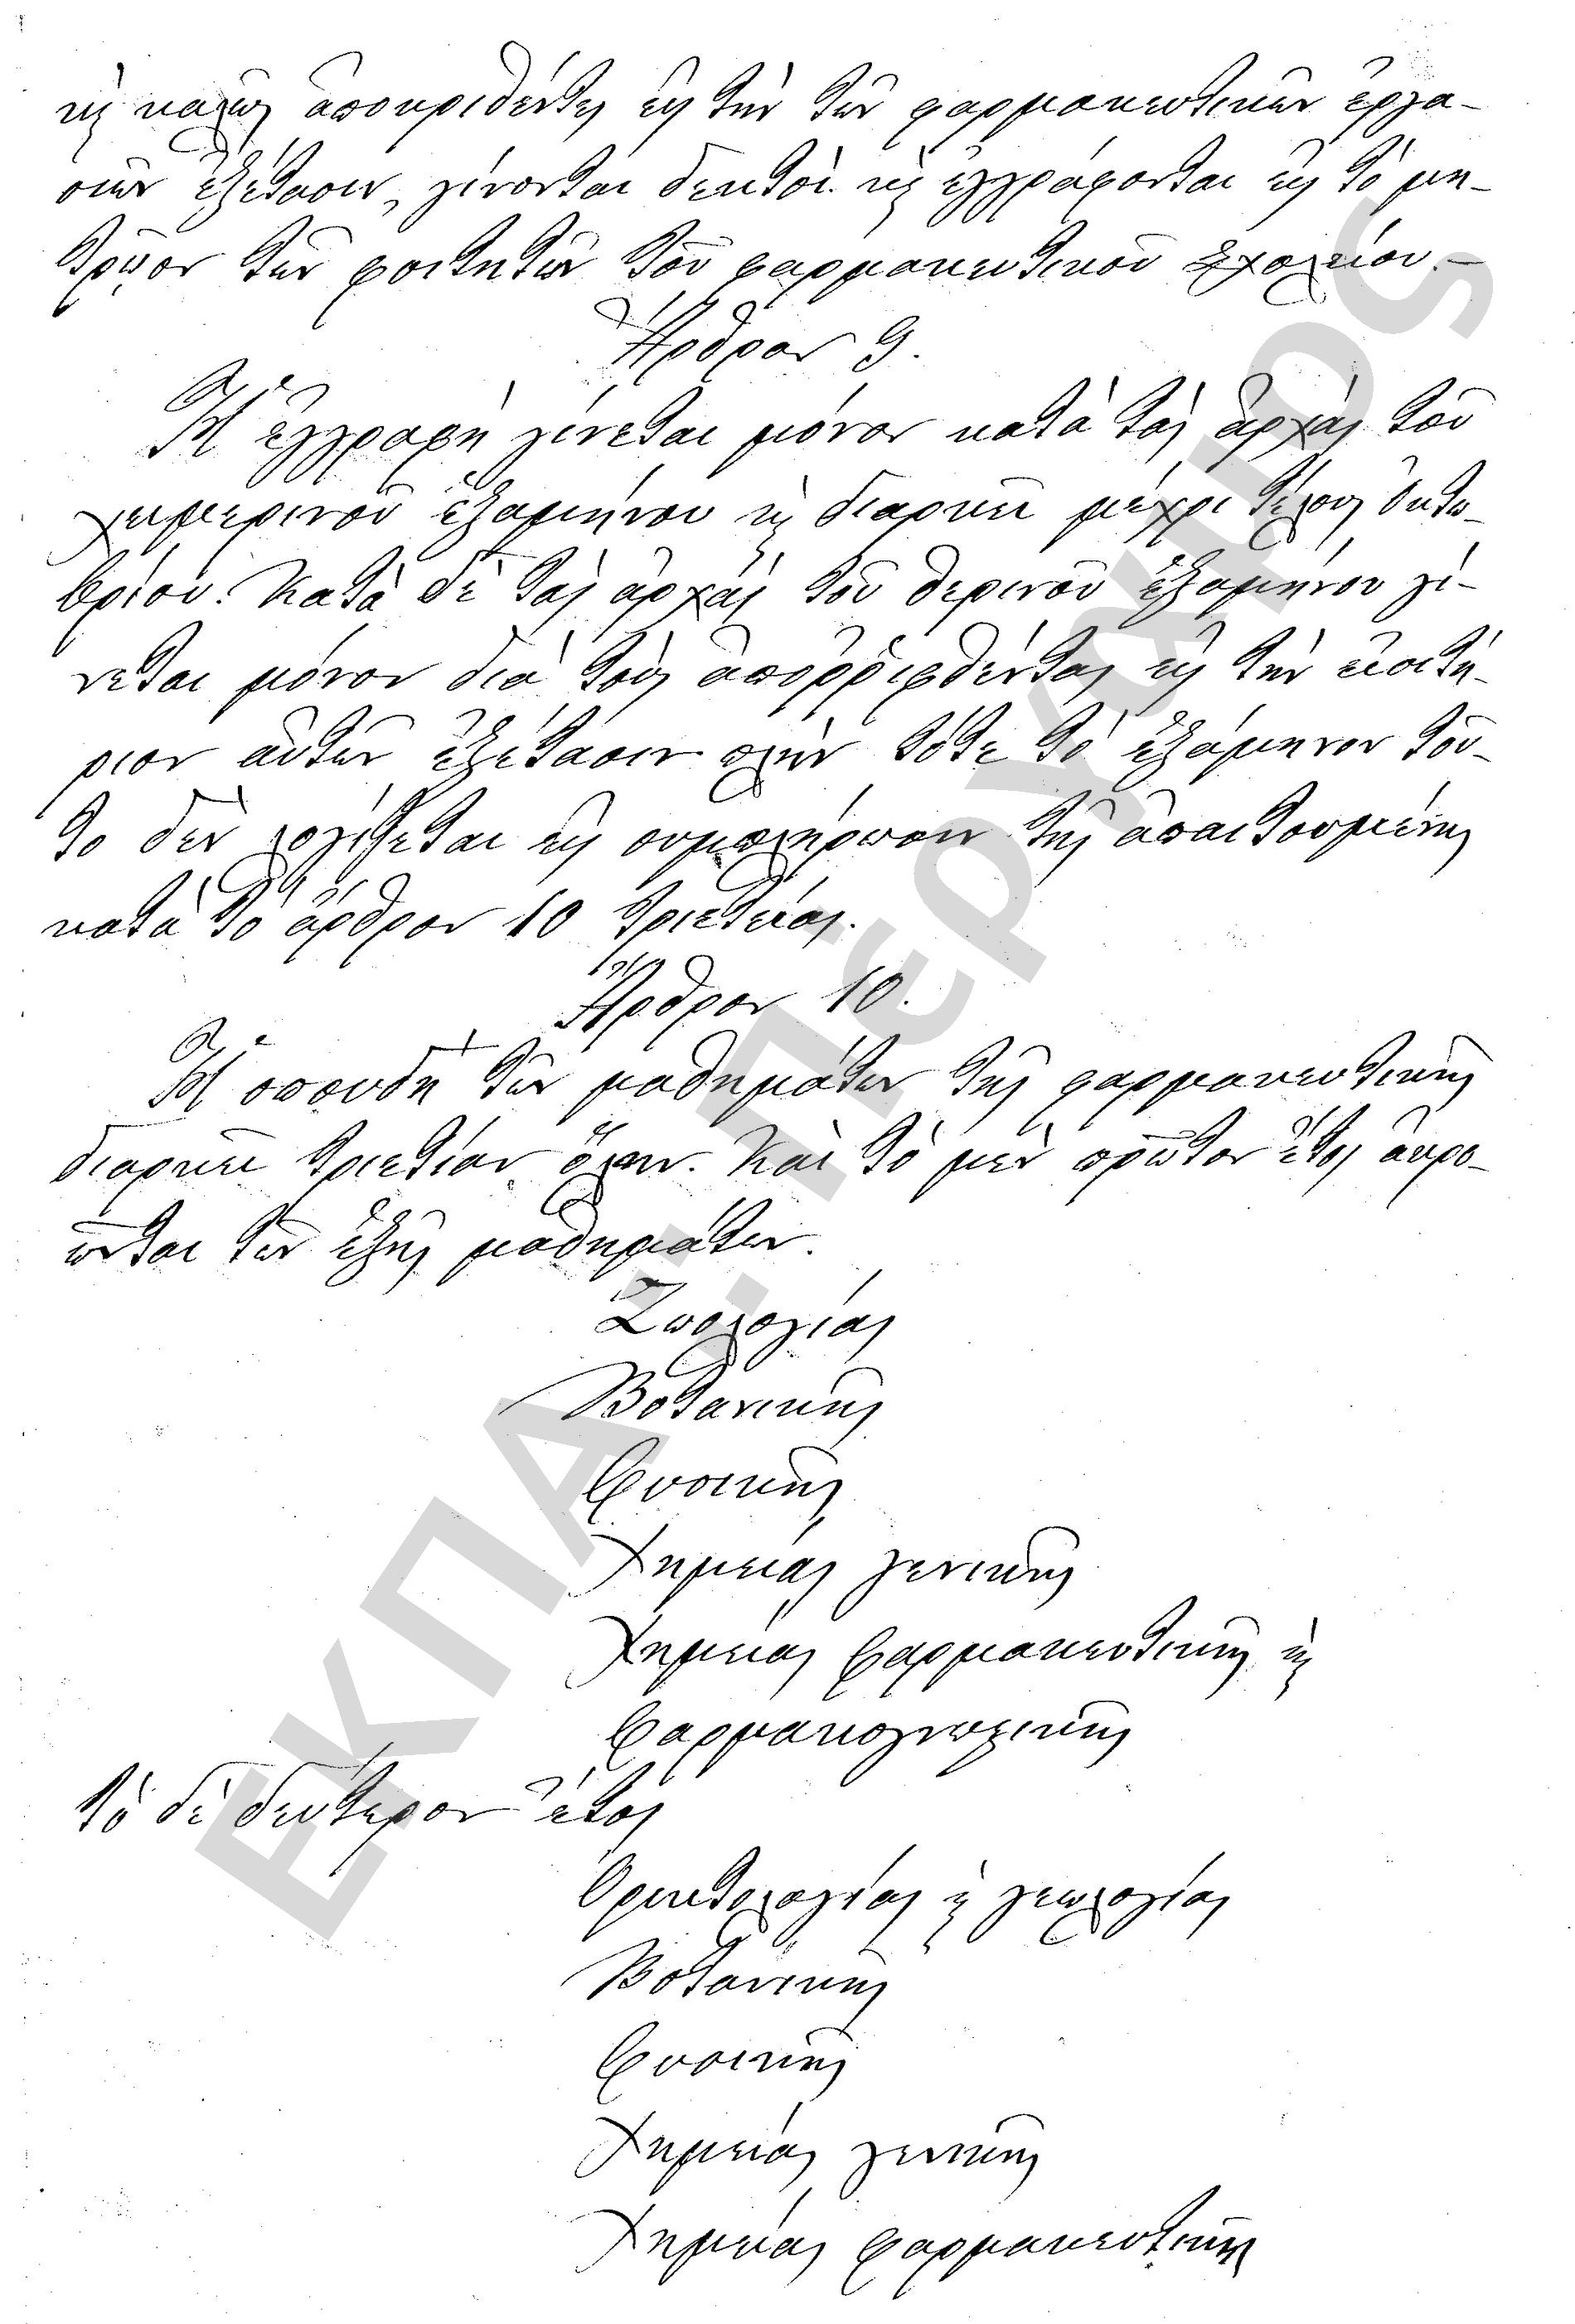 καὶ καλῶς ἀποκριθέντες εἰς τὴν τῶν φαρμακευτικῶν ἐργα-
σιῶν ἐξέτασιν, γίνονται δεκτοὶ καὶ ἐγγράφονται εἰς τὸ μη-
τρῷον τῶν φοιτητῶν τοῦ φαρμακευτικοῦ Σχολείου.—
Ἄρθρον 9.
Ἡ ἐγγραφὴ γίνεται μόνον κατὰ τὰς ἀρχὰς τοῦ
χειμερινοῦ ἑξαμήνου καὶ διαρκεῖ μέχρι τέλους Ὀκτω-
βρίου. Κατὰ δὲ τὰς ἀρχὰς τοῦ θερινοῦ ἑξαμήνου γί-
νεται μόνον διὰ τοὺς ἀποῤῥιφθέντας εἰς τὴν εἰσιτή-
ριον αὐτῶν ἐξέτασιν πλὴν τότε τὸ ἑξάμηνον τοῦ-
το δὲν λογίζεται εἰς συμπλήρωσιν τῆς ἀπαιτουμένης
κατὰ τὸ ἄρθρον 10 τριετείας.
Ἄρθρον 10.
Ἡ σπουδὴ τῶν μαθημάτων τῆς φαρμακευτικῆς
διαρκεῖ τριετίαν ὅλην. Καὶ τὸ μὲν πρῶτον ἔτος ἀκρο-
ῶνται τῶν ἑξῆς μαθημάτων.
Ζωολογίας
Βοτανικῆς
Φυσικῆς
Χημείας γενικῆς
Χημείας Φαρμακευτικῆς καὶ
Φαρμακογνωστικῆς
τὸ δὲ δεύτερον ἔτος
Ὀρυκτολογίας καὶ γεωλογίας
Βοτανικῆς
Φυσικῆς
Χημείας γενικῆς
Χημείας φαρμακευτικῆς
ΕΚΠΑ - Πέργαμος